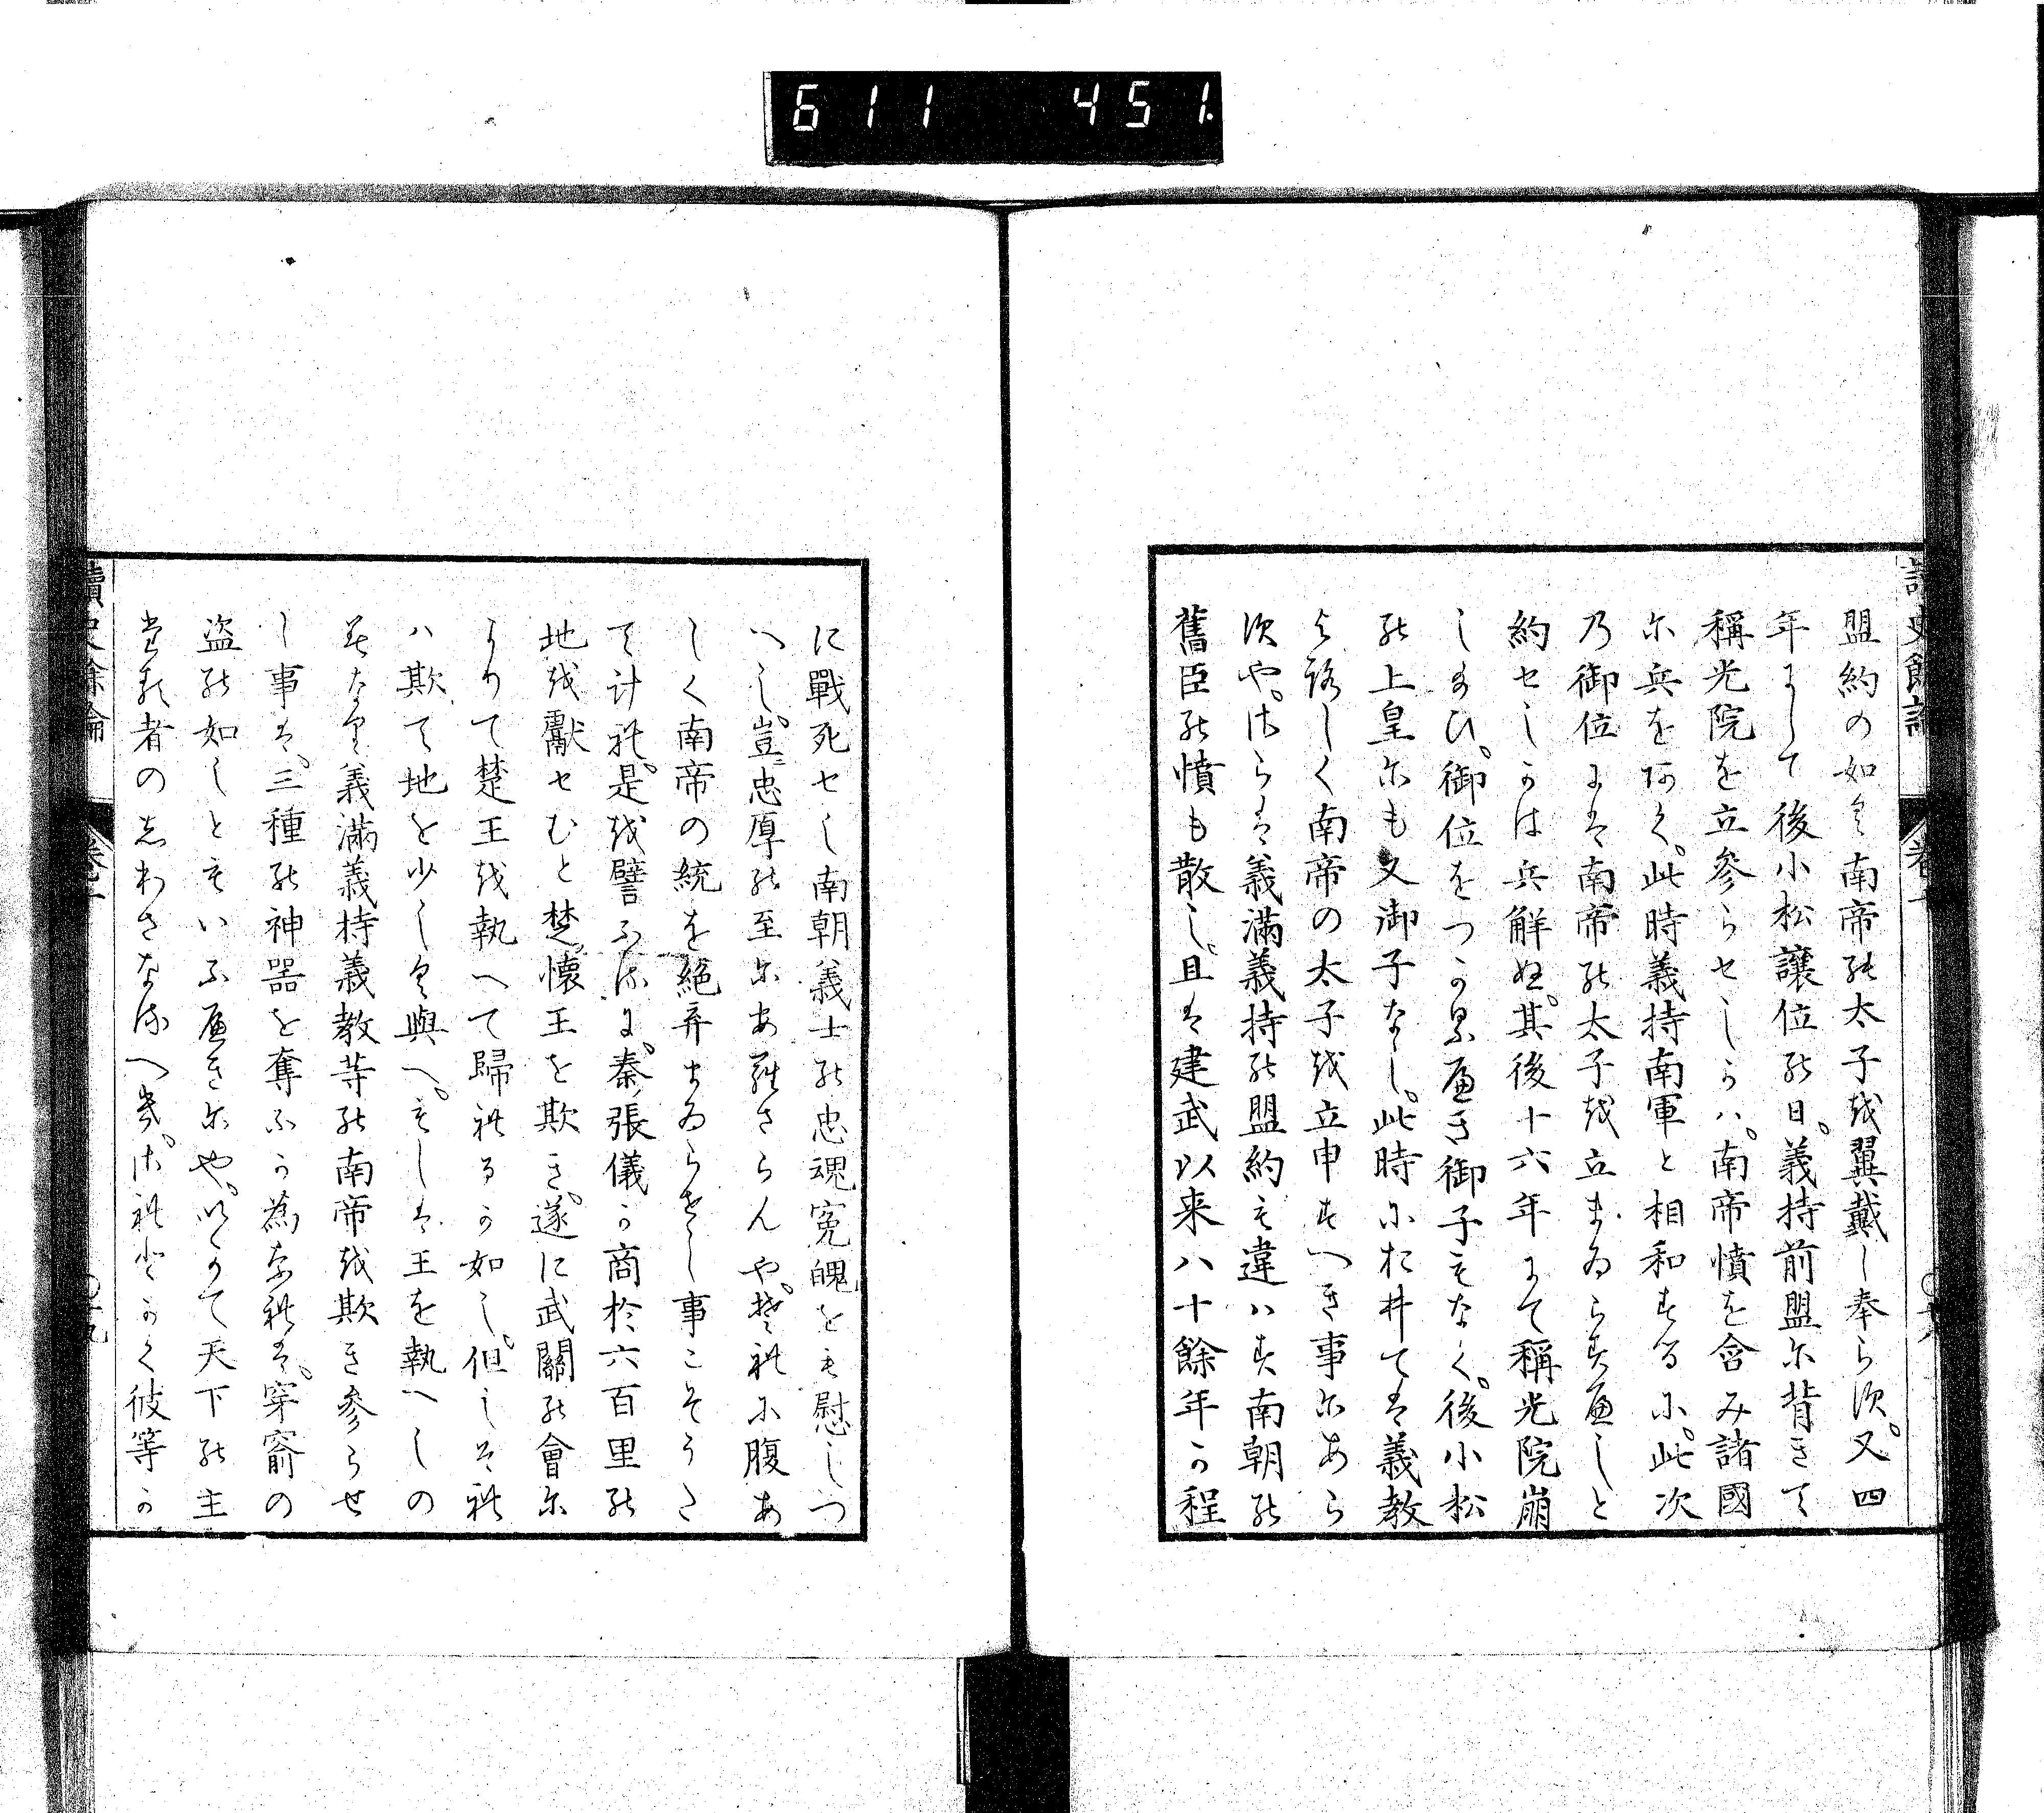 611 451.
讀史餘論
盟約の如く南帝の太子を翼戴し奉らす。又四
年にして後小松讓位の日。義持前盟に背きて
稱光院を立参らせしかハ。南帝憤を含み諸國
に兵をあく。此時義持南軍と相和するに。此次
乃御位には南帝の太子を立まゐらすへしと
約せしかは兵解ぬ。其後十六年にて稱光院崩
し給ひ。御位をつかるへき御子もなく。後小松
の上皇にも又御子なし。此時におゐては義教
よろしく南帝の太子を立申すへき事にあら
すや。さらは義滿義持の盟約も違ハす南朝の
舊臣の憤も散し。且は建武以来八十餘年か程
に戰死せし南朝義士の忠魂寃魄をも慰しつ
へし。豈忠厚の至にあらさらんや。それに腹あ
しく南帝の統を絶弃まゐらせし事こそうた
て计れ。是を譬ふるに。秦張儀か商於六百里の
地を獻せむと楚懷王を欺き。遂に武關の會に
よりて楚王を執へて歸れるか如し。但しそれ
ハ欺て地を少しく與へ。もしは王を執へしの
みなり。義滿義持義教等の南帝を欺き参らせ
し事は。三種の神器を奪ふか為なれは。穿窬の
盗の如しともいふへきにや。いかて天下の主
たる者のしわさなるへき。されとかく彼等か
讀史餘論